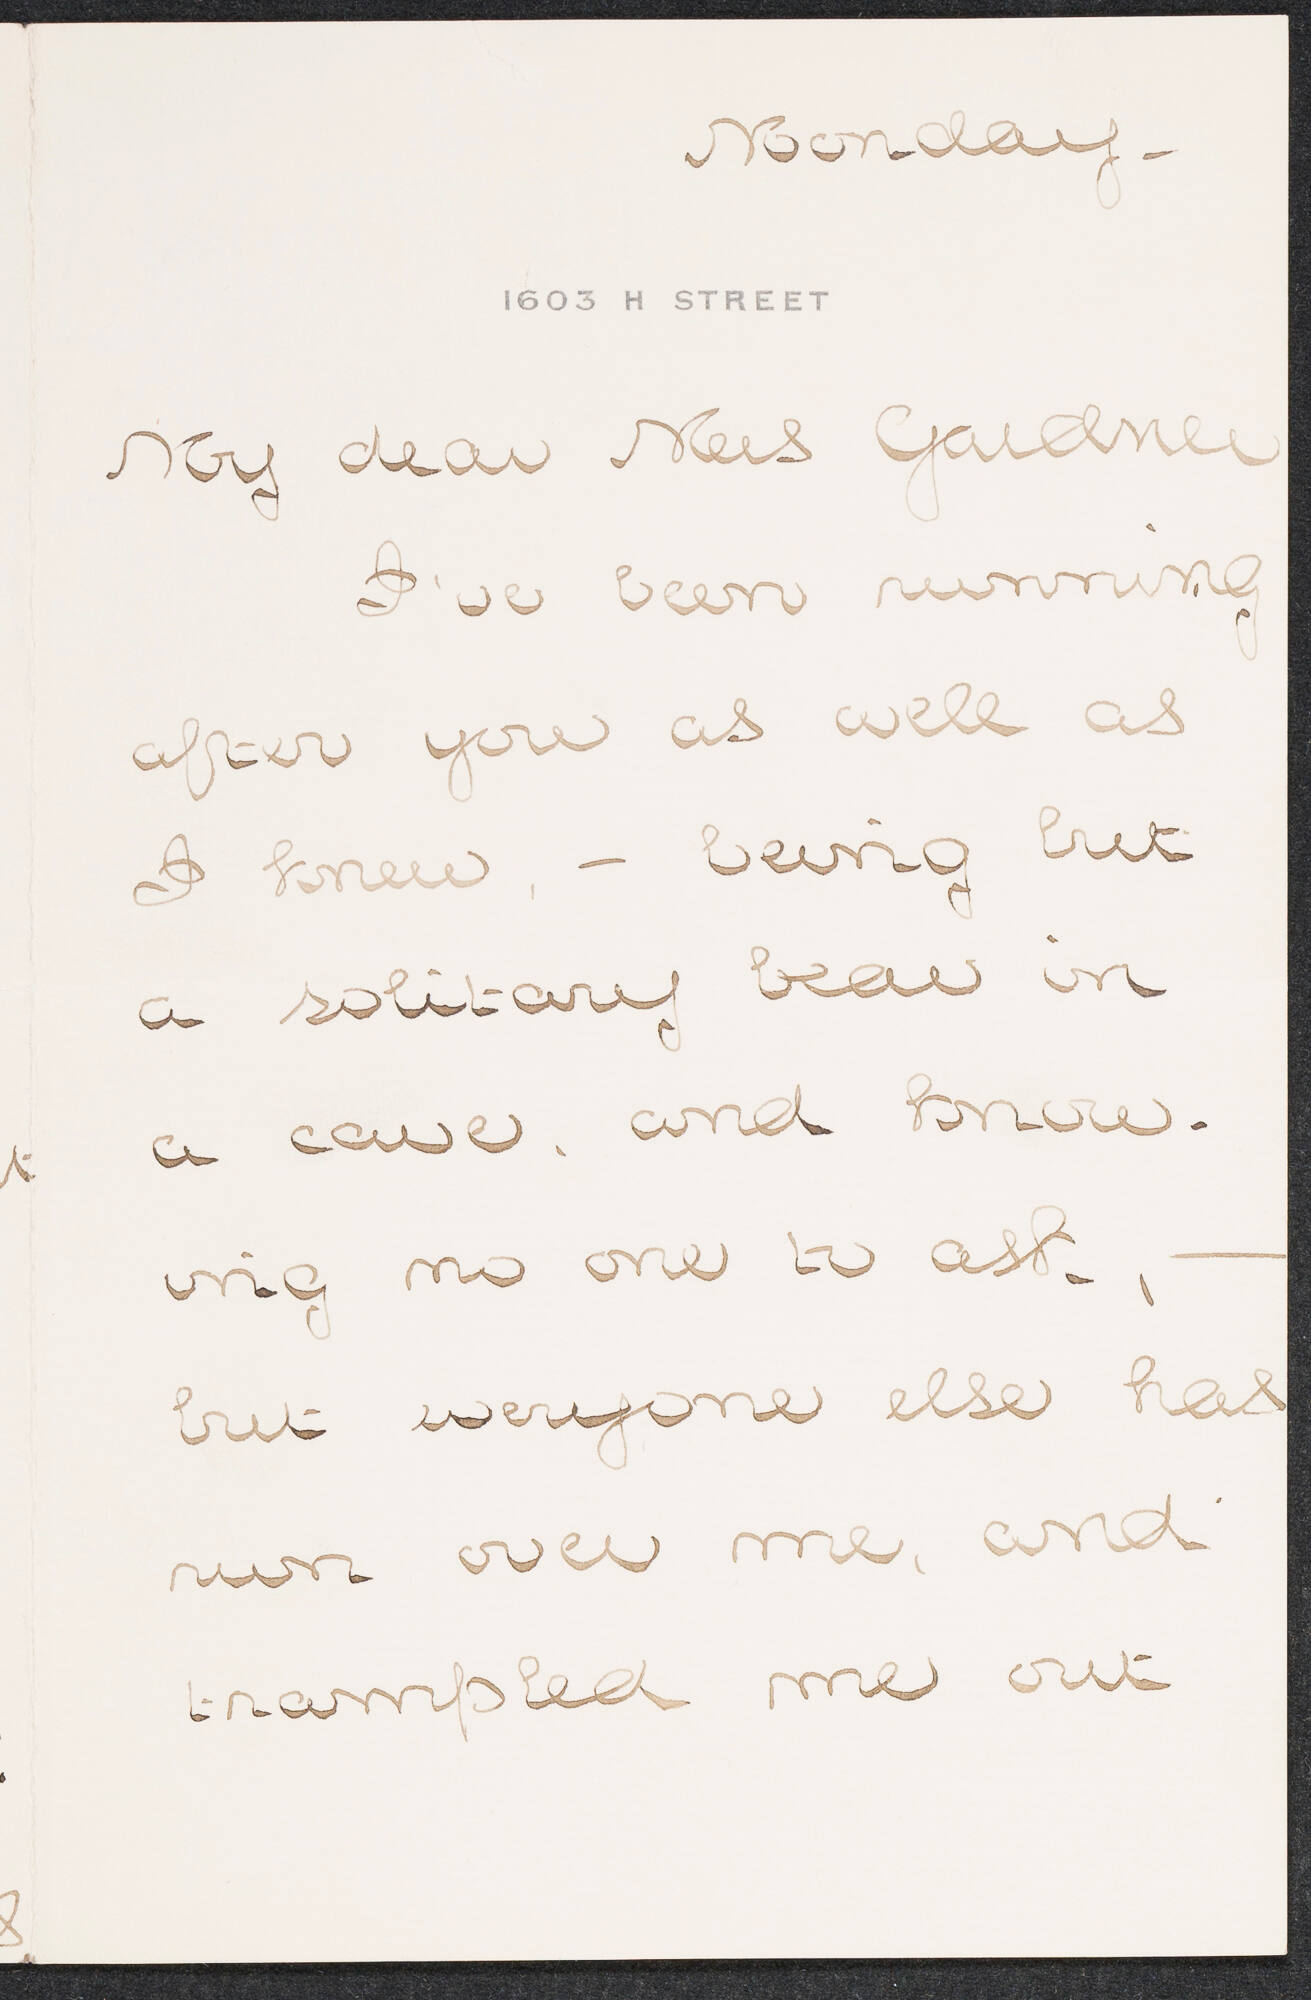 Monday -
1603 H STREET
My dear Mrs Gardner
I've been running
after you as well as
I knew, - being but
a solitary bear in
a cave, and know-
ing no one to ask, —
but everyone else has
run over me, and
trampled me out